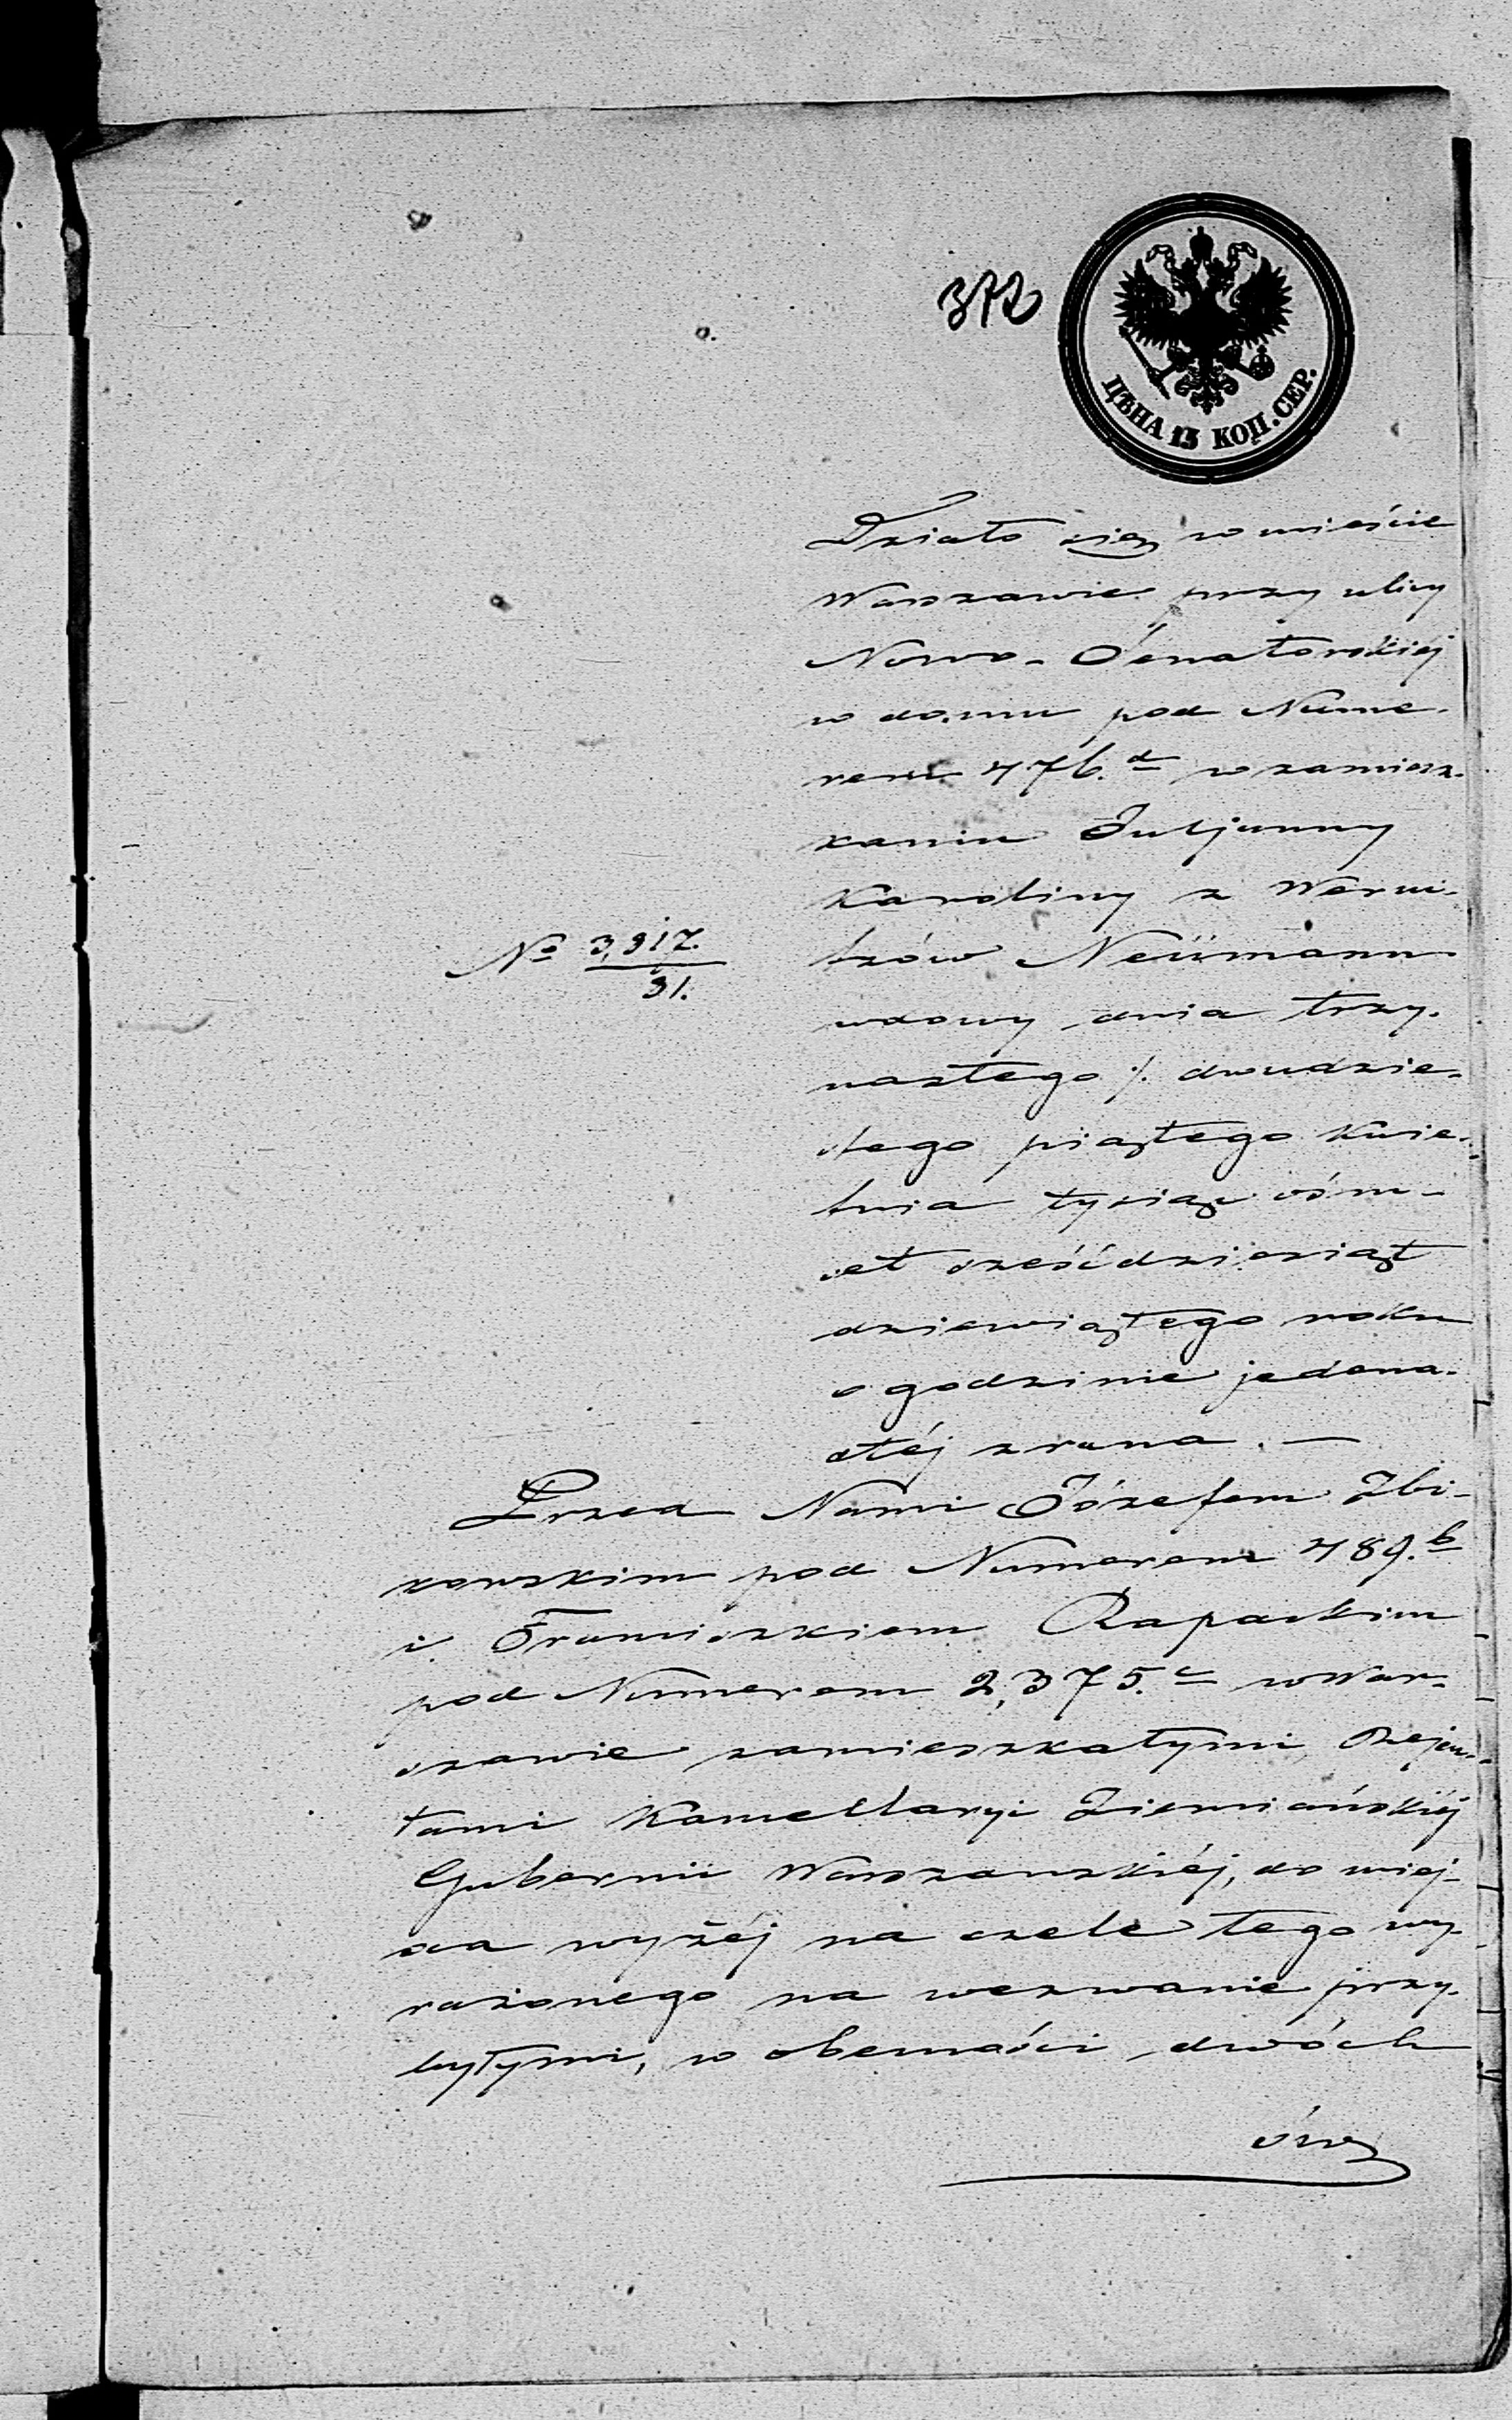 372
ЦѢНА 15 КОП. СЕР.
Działo się w mieście
Warszawie przy ulicy
Nowo-Senatorskiéj
w domu pod Nume-
rem 476.d w zamiesz-
kaniu Juljanny
Karoliny z Werni-
tzów Neümann
wdowy dnia trzy-
nastego /. dwudzie-
stego piątego Kwie-
tnia tysiąc ośm-
set sześćdziesiąt
dziewiątego roku
o godzinie jedena-
stéj zrana. —
No 3,917.
31.
Przed Nami Józefem Zbi-
kowskim pod Numerem 489.b
i Franciszkiem Rapackim
pod Numerem 2,375.c w War-
szawie zamieszkałymi, Rejen-
tami Kancellaryi Ziemiańskiéj
Gubernii Warszawskiéj, do miej-
sca wyżéj na czele tego wy-
rażonego na wezwanie przy-
byłymi, w obecności dwóch